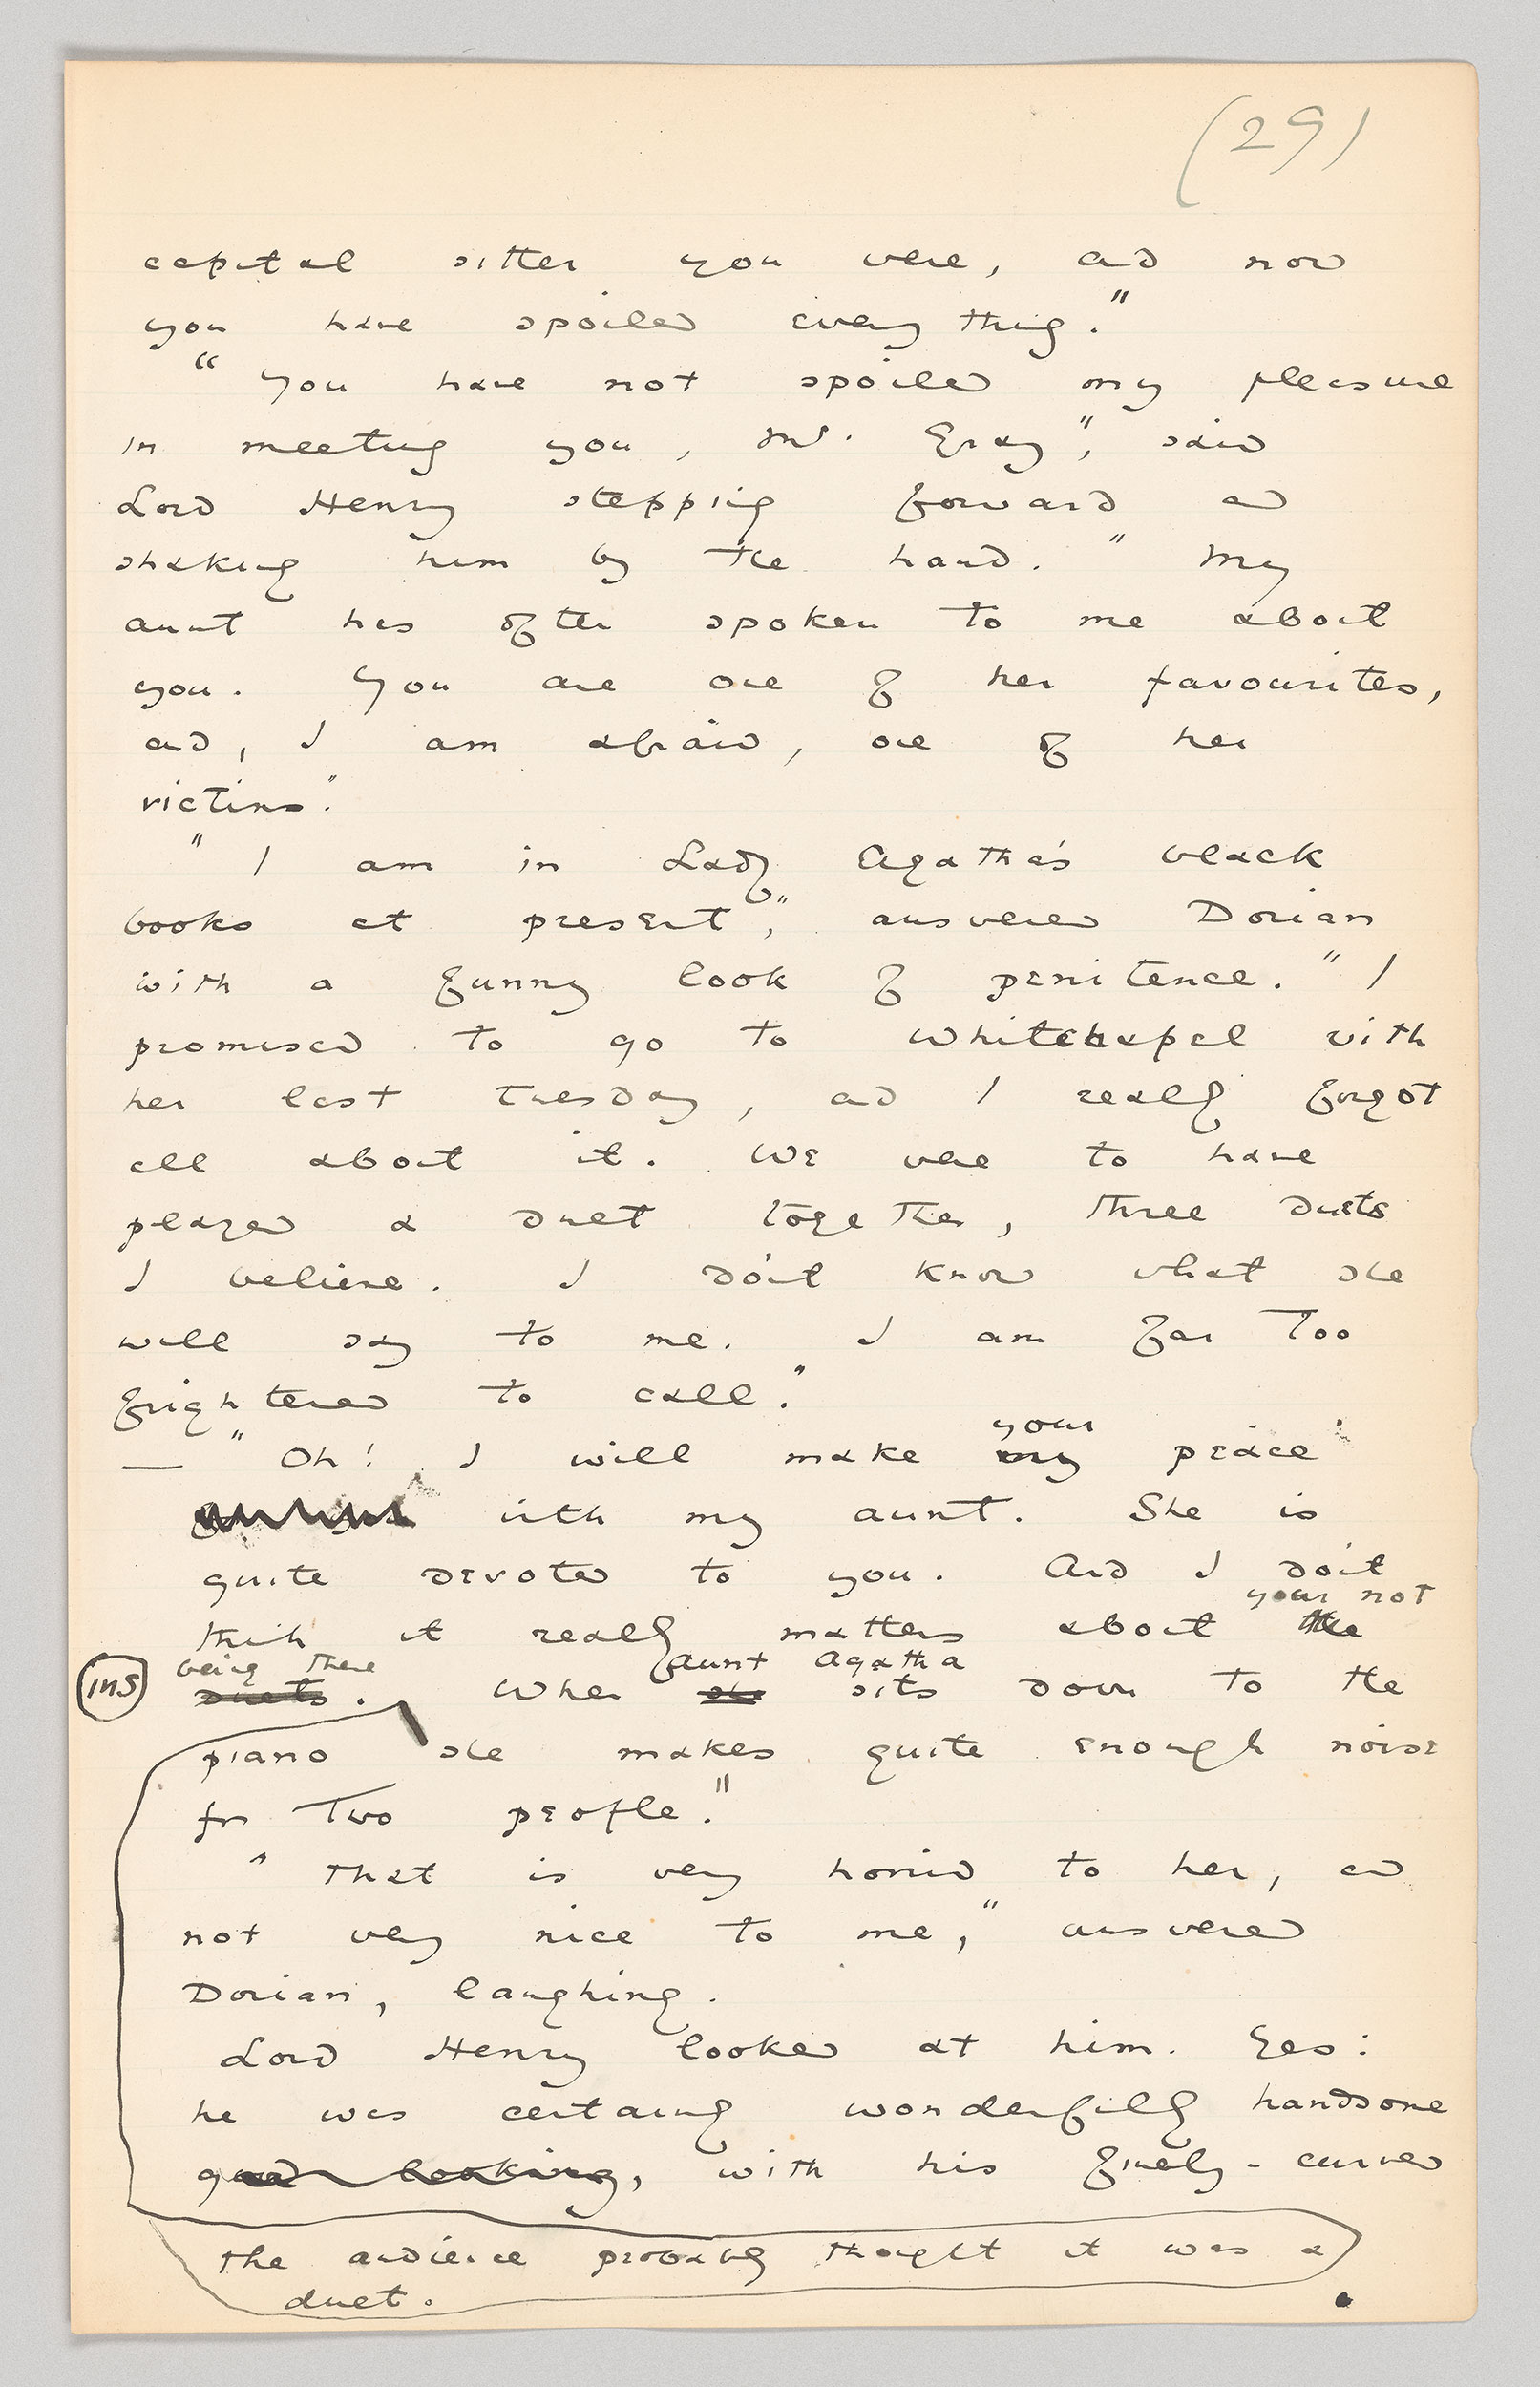 (29)
capital sitter you were, and now
you have spoiled everything."
"You have not spoiled my pleasure
in meeting you, Mr. Gray", said
Lord Henry stepping forward and
shaking him by the hand. "My
aunt has often spoken to me about
you. You are one of her favourites,
and, I am afraid, one of her
victims".
"I am in Lady Agatha's black
books at present", answered Dorian
with a funny look of penitence. "I
promised to go to Whitechapel with
her last Tuesday, and I really forgot
all about it. We were to have
played a duet together, three duets
I believe. I don't know what she
will say to me. I am far too
frightened to call."
your
— "Oh! I will make my peace
with my aunt. She is
quite devoted to you. And I don't
your not
think it really matters about the
being there aunt Agatha
ins duets. When she sits down to the
piano she makes quite enough noise
for two people."
"That is very horrid to her, and
not very nice to me," answered
Dorian, laughing.
Lord Henry looked at him. Yes:
he was certainly wonderfully handsome
good looking, with his finely-curved
The audience probably thought it was a
duet.